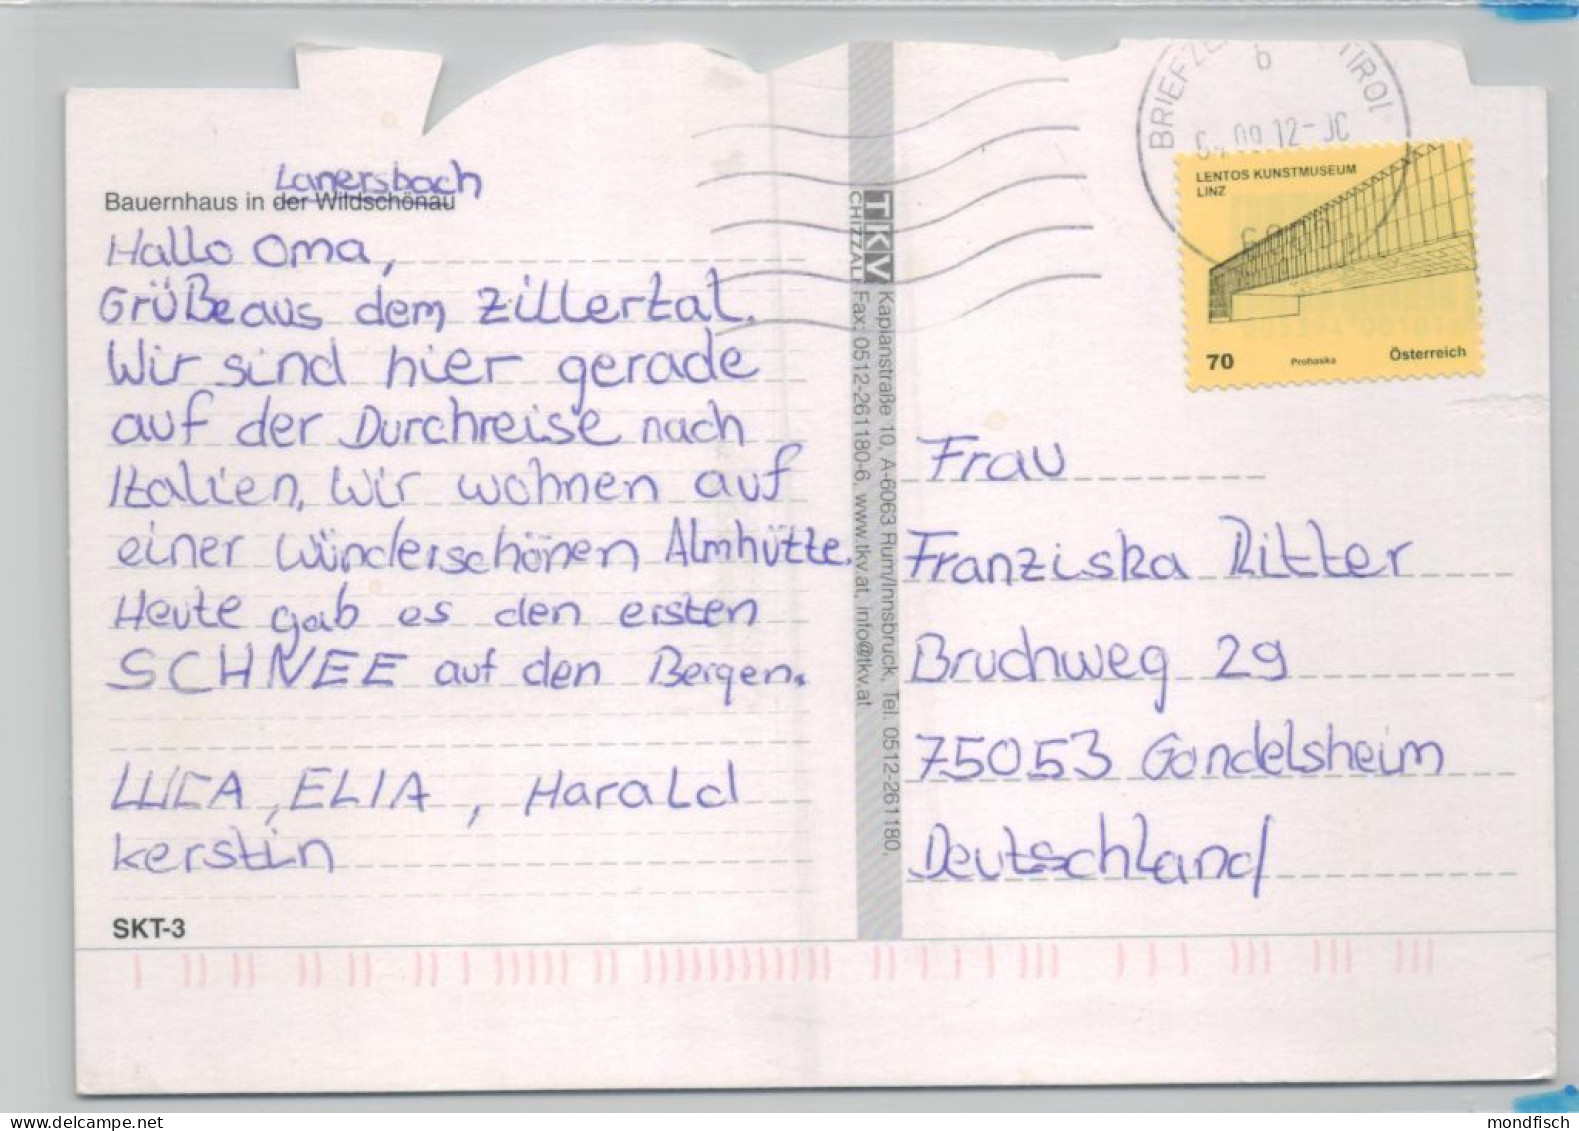 Lanersbach
Bauernhaus in der Wildschönau
Hallo Oma,
Grüße aus dem Zillertal.
Wir sind hier gerade
auf der Durchreise nach
Italien. Wir wohnen auf
einer wünderschönen Almhütte.
Heute gab es den ersten
SCHNEE auf den Bergen.
LUCA, ELIA, Harald
Kerstin
SKT-3
TKV
CHIZZALI
Kaplanstraße 10, A-6063 Rum/Innsbruck, Tel. 0512-261180,
Fax: 0512-261180-6, www.tkv.at, info@tkv.at
BRIEFZE TIROL
b
04.09.12-
LENTOS KUNSTMUSEUM
LINZ
70 Prohaska Österreich
Frau
Franziska Ritter
Bruchweg 29
75053 Gondelsheim
Deutschland
mondfisch